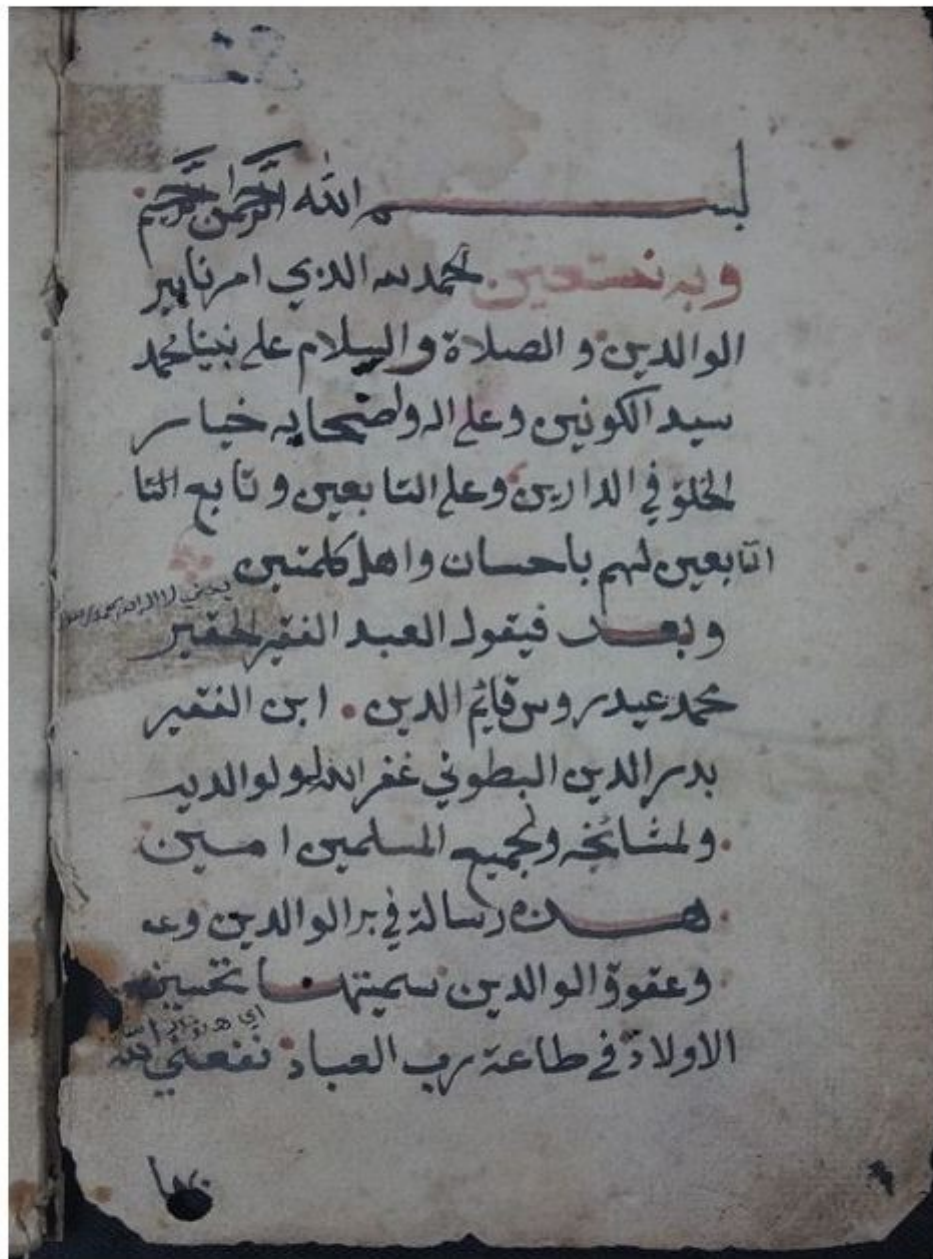 بسم الله الرحمن الرحيم
وبه نستعين الحمد لله الذي امرنا ببر
الوالدين والصلاة والسلام على نبينا محمد
سيد الكونين وعلى اله واصحابه خيار
الخلق في الدارين وعلى التابعين وتابع التا
التابعين لهم باحسان واهل كلمتين
يعني لا اله الا الله محمد رسول
وبعد فيقول العبد الفقير الحقير
محمد عيدروس قايم الدين ابن الفقير
بدر الدين البطوني غفر الله له ولوالديه
ولمشائخه ولجميع المسلمين امين
هذه رسالة في بر الوالدين وعـ
وعقوق الوالدين سميتها تحسين
الاولاد في طاعة رب العباد نفعني الله
اي هذه
بها